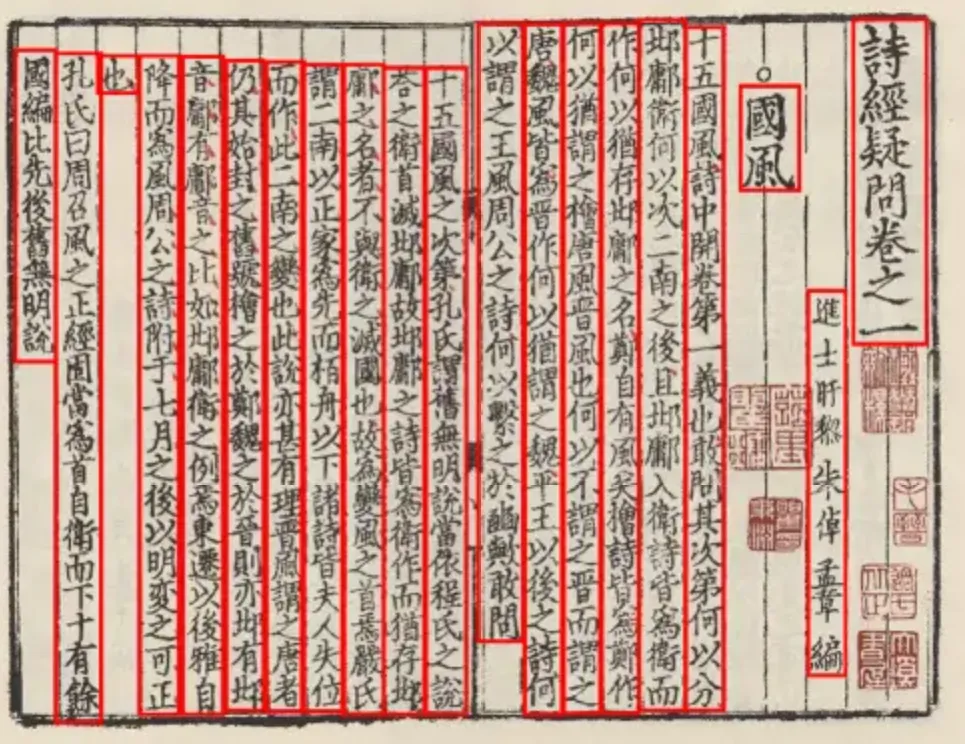 詩經疑問卷之一
進士盱黎朱倬孟章編
國風
十五國風詩中開卷第一義也敢問其次第何以分
邶鄘衛何以次二南之後且邶鄘入衛詩皆為衛而
作何以猶存邶鄘之名鄭自有風矣檜詩皆為鄭作
何以猶謂之檜唐風晋風也何以不謂之晋而謂之
唐魏風皆為晋作何以猶謂之魏平王以後之詩何
以謂之王風周公之詩何以繫之於豳歟敢問
十五國風之次第孔氏謂舊無明說當依程氏之說
荅之衛首滅邶鄘故邶鄘之詩皆為衛作而猶存邶
鄘之名者不與衛之滅國也故為變風之首焉嚴氏
謂二南以正家為先而栢舟以下諸詩皆夫人失位
而作此二南之變也此說亦甚有理晋風謂之唐者
仍其始封之舊號檜之於鄭魏之於晉則亦邶有邶
音鄘有鄘音之比如邶鄘衛之例焉東遷以後雅自
降而為風周公之詩附于七月之後以明变之可正
也
孔氏曰周召風之正經固當為首自衛而下十有餘
國編比先後舊無明說